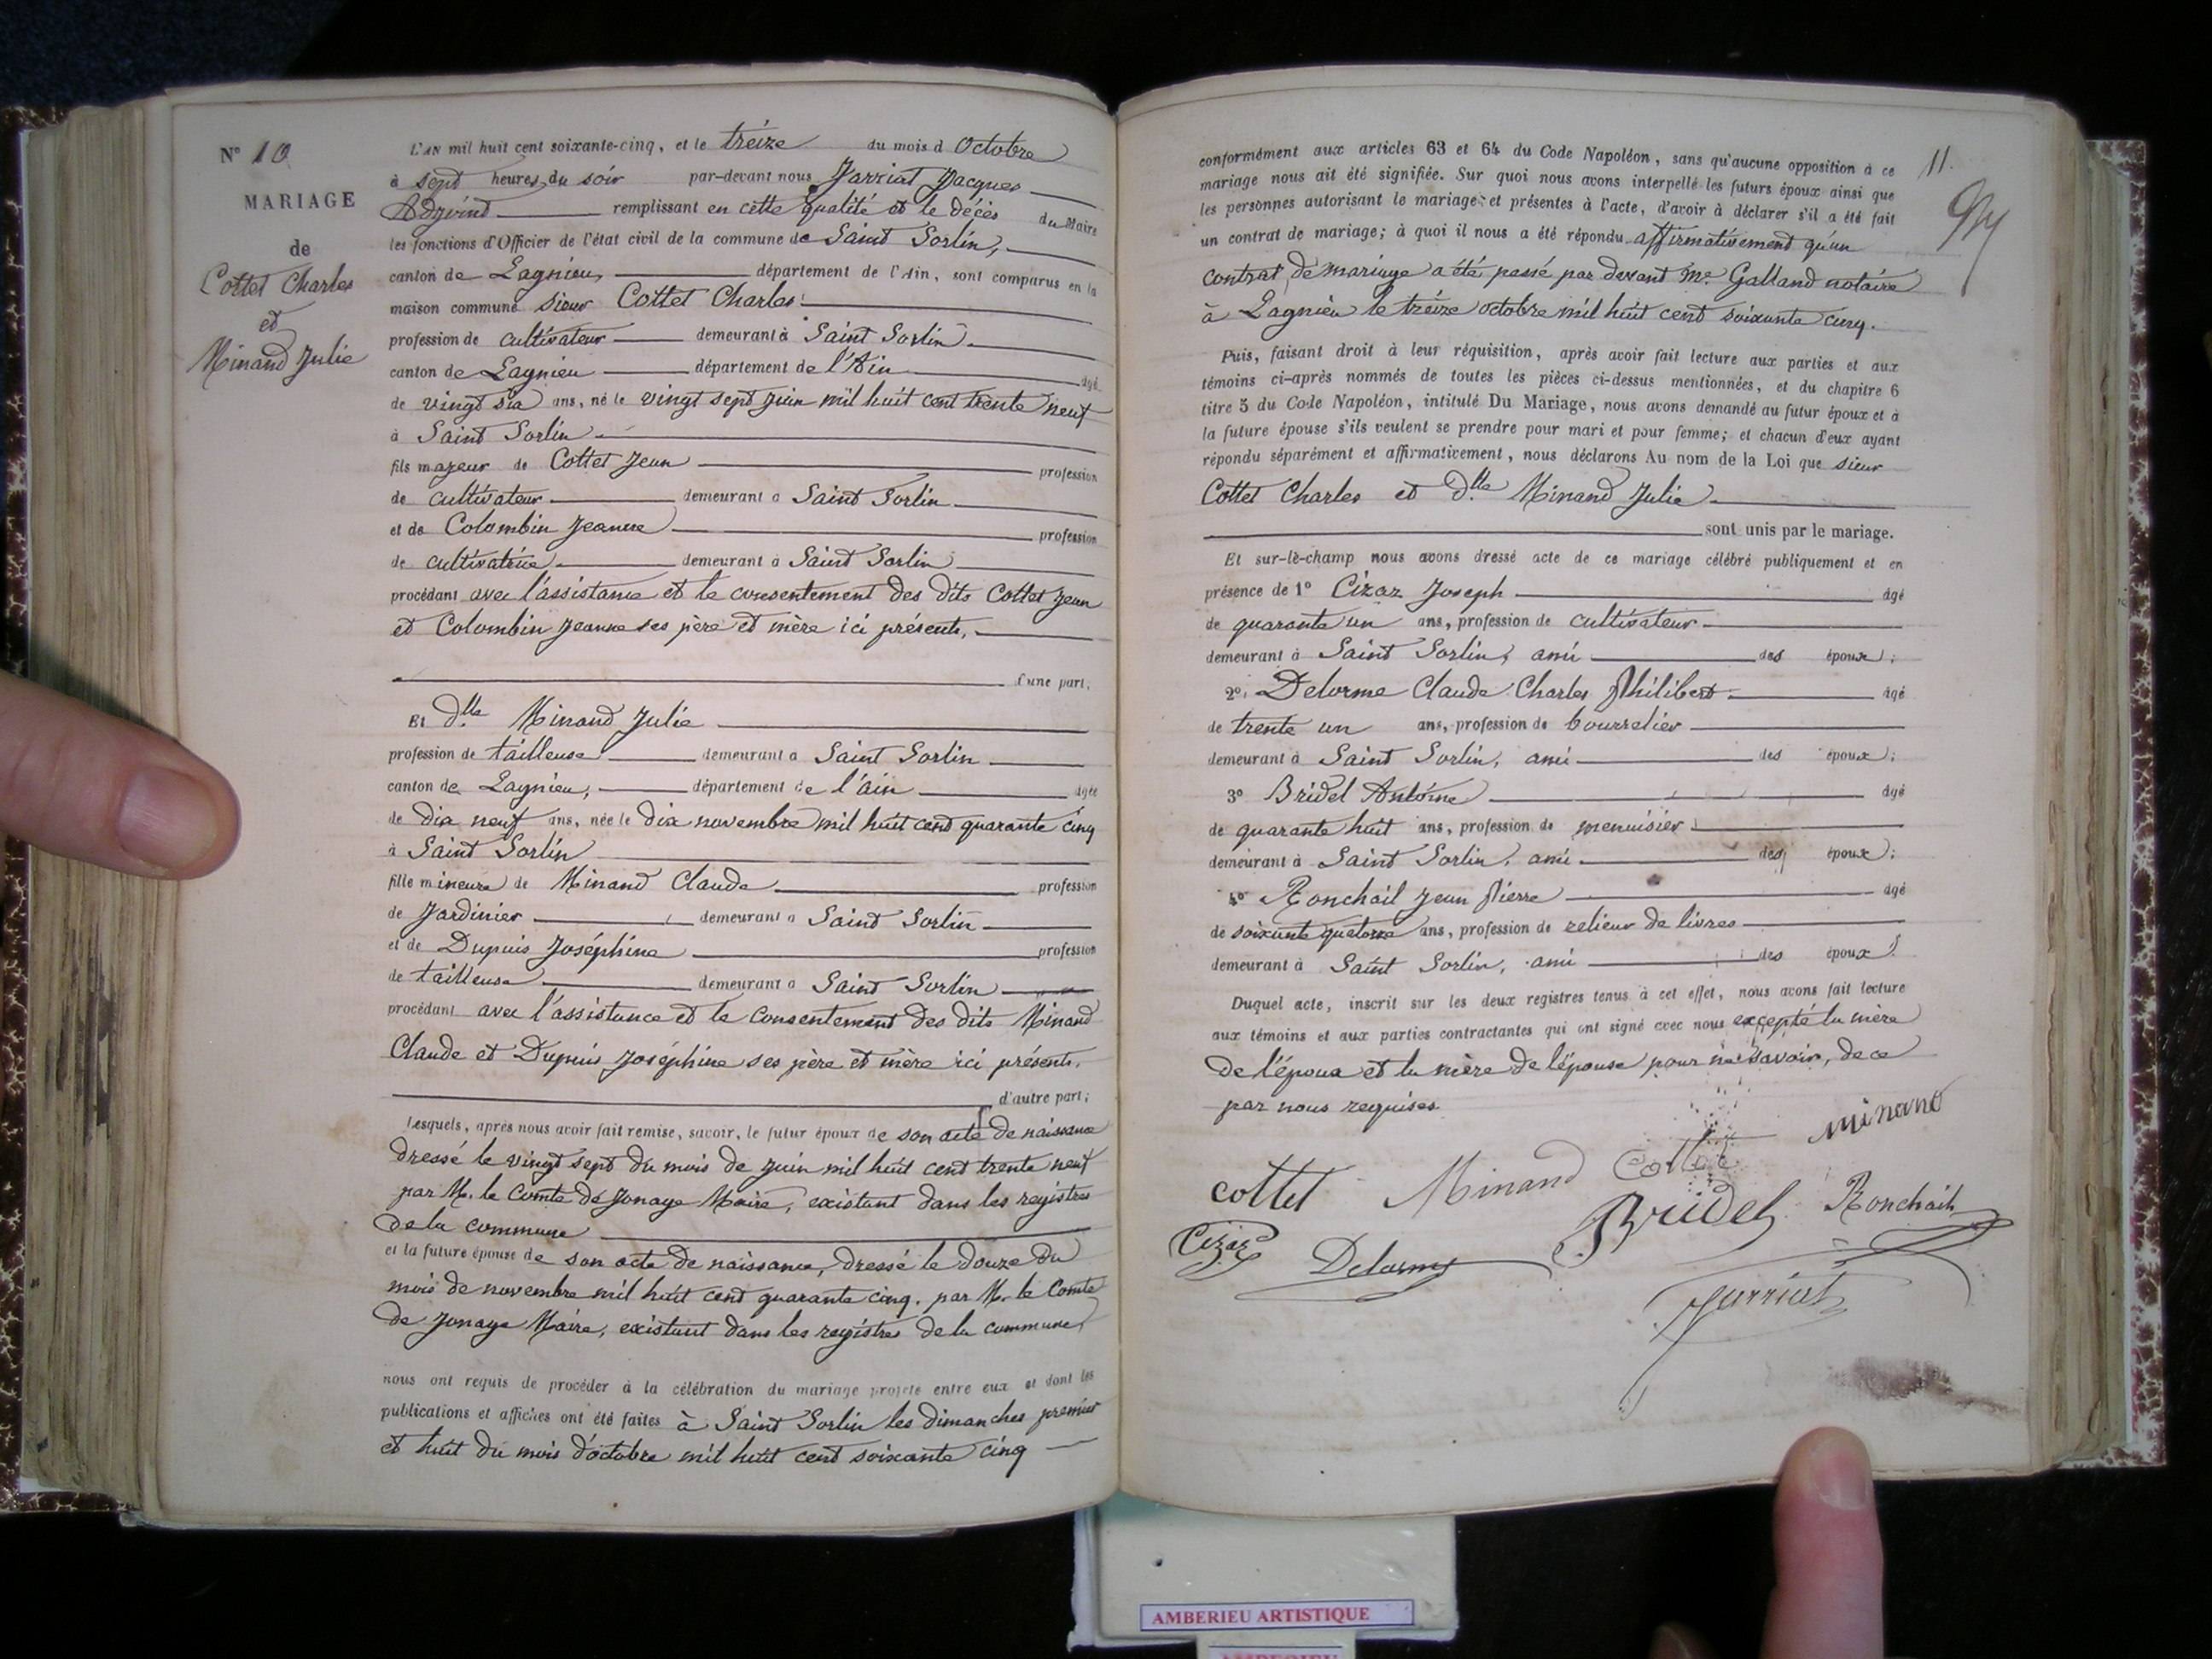 N° 10
MARIAGE
de
Cottet Charles
et
Minand Julie
L'AN mil huit cent soixante-cinq, et le treize du mois d Octobre
à sept heures du soir par-devant nous Jarriat Jacques
Adjoint remplissant en cette qualité et le décès du Maire
les fonctions d'Officier de l'état civil de la commune de Saint Sorlin,
canton de Lagnieu, département de l'Ain, sont comparus en la
maison commune sieur Cottet Charles
profession de cultivateur demeurant à Saint Sorlin
canton de Lagnieu département de l'Ain âgé
de vingt six ans, né le vingt sept juin mil huit cent trente neuf
à Saint Sorlin
fils majeur de Cottet Jean profession
de cultivateur demeurant à Saint Sorlin
et de Colombin Jeanne profession
de cultivatrice demeurant à Saint Sorlin
procédant avec l'assistance et le consentement des dits Cottet Jean
et Colombin Jeanne ses père et mère ici présents,
d'une part,
Et dlle Minand Julie
profession de tailleuse demeurant à Saint Sorlin
canton de Lagnieu, département de l'ain âgée
de dix neuf ans, née le dix novembre mil huit cent quarante cinq
à Saint Sorlin
fille mineure de Minand Claude profession
de Jardinier demeurant à Saint Sorlin
et de Dupuis Joséphine profession
de tailleuse demeurant à Saint Sorlin
procédant avec l'assistance et le consentement des dits Minand
Claude et Dupuis Joséphine ses père et mère ici présents.
d'autre part;
Lesquels, après nous avoir fait remise, savoir, le futur époux de son acte de naissance
dressé le vingt sept du mois de juin mil huit cent trente neuf
par M. le Comte de Jonage Maire, existant dans les registres
de la commune
et la future épouse de son acte de naissance, dressé le douze du
mois de novembre mil huit cent quarante cinq. par M. le Comte
de Jonage Maire, existant dans les registres de la commune
nous ont requis de procéder à la célébration du mariage projeté entre eux et dont les
publications et affiches ont été faites à Saint Sorlin les dimanches premier
et huit du mois d'octobre mil huit cent soixante cinq
11.
conformément aux articles 63 et 64 du Code Napoléon, sans qu'aucune opposition à ce
mariage nous ait été signifiée. Sur quoi nous avons interpellé les futurs époux ainsi que
les personnes autorisant le mariage et présentes à l'acte, d'avoir à déclarer s'il a été fait
un contrat de mariage; à quoi il nous a été répondu affirmativement qu'un
contrat de mariage a été passé par devant Me. Galland notaire
à Lagnieu le treize octobre mil huit cent soixante cinq.
Puis, faisant droit à leur réquisition, après avoir fait lecture aux parties et aux
témoins ci-après nommés de toutes les pièces ci-dessus mentionnées, et du chapitre 6
titre 5 du Code Napoléon, intitulé Du Mariage, nous avons demandé au futur époux et à
la future épouse s'ils veulent se prendre pour mari et pour femme; et chacun d'eux ayant
répondu séparément et affirmativement, nous déclarons Au nom de la Loi que sieur
Cottet Charles et Dlle Minand Julie
sont unis par le mariage.
Et sur-le-champ nous avons dressé acte de ce mariage célébré publiquement et en
présence de 1° Cizaz Joseph âgé
de quarante un ans, profession de cultivateur
demeurant à Saint Sorlin, ami des époux;
2° Delorme Claude Charles Philibert âgé
de trente un ans, profession de bourrelier
demeurant à Saint Sorlin, ami des époux;
3° Bridel Antoine âgé
de quarante huit ans, profession de menuisier
demeurant à Saint Sorlin, ami des époux;
4° Ronchail Jean Pierre âgé
de soixante quatorze ans, profession de relieur de livres
demeurant à Saint Sorlin, ami des époux.
Duquel acte, inscrit sur les deux registres tenus à cet effet, nous avons fait lecture
aux témoins et aux parties contractantes qui ont signé avec nous excepté la mère
de l'époux et la mère de l'épouse pour ne savoir, de ce
par nous requises
minand
cottet Minand Cottet
Bridel Ronchail
Cizaz Delorme
Jarriat
AMBERIEU ARTISTIQUE